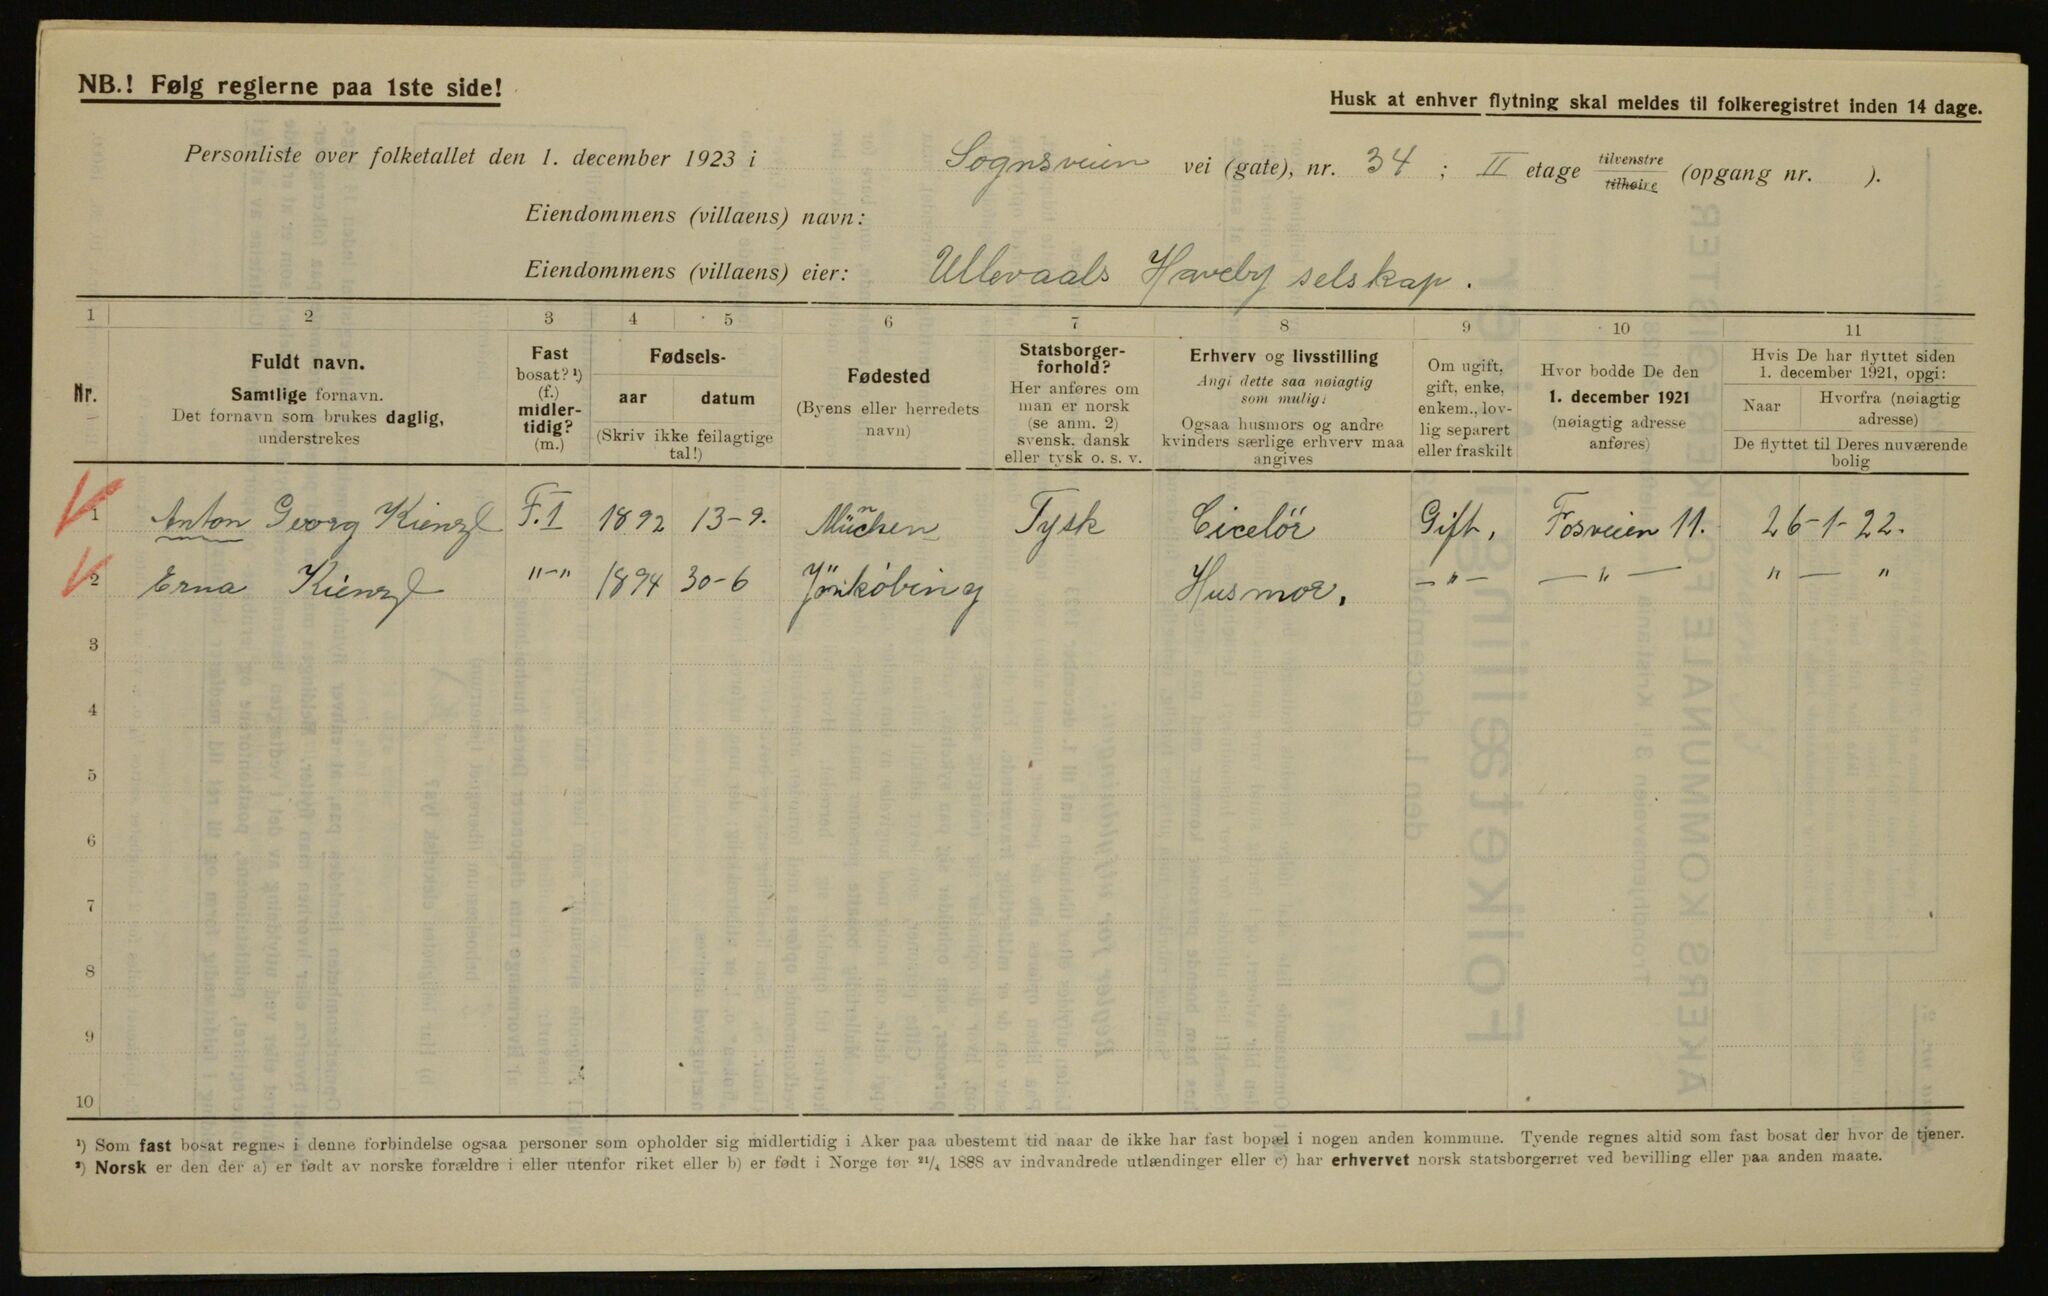 NB.! Følg reglerne paa 1ste side!
Husk at enhver flytning skal meldes til folkeregistret inden 14 dage.
Personliste over folketallet den 1. december 1923 i Sognsveien vei (gate), nr. 34 ; II etage tilvenstre tilhøire (opgang nr. ).
Eiendommens (villaens) navn:
Eiendommens (villaens) eier: Ullevaals Haveby selskap.
1 2 3 4 5 6 7 8 9 10 11
Nr.
Fuldt navn.
Samtlige fornavn.
Det fornavn som brukes daglig,
understrekes
Fast
bosat? ¹)
(f.)
midler-
tidig?
(m.)
Fødsels-
aar datum
(Skriv ikke feilagtige
tal!)
Fødested
(Byens eller herredets
navn)
Statsborger-
forhold?
Her anføres om
man er norsk
(se anm. 2)
svensk, dansk
eller tysk o. s. v.
Erhverv og livsstilling
Angi dette saa nøiagtig
som mulig:
Ogsaa husmors og andre
kvinders særlige erhverv maa
angives
Om ugift,
gift, enke,
enkem., lov-
lig separert
eller fraskilt
Hvor bodde De den
1. december 1921
(nøiagtig adresse
anføres)
Hvis De har flyttet siden
1. december 1921, opgi:
Naar
Hvorfra (nøiagtig
adresse)
De flyttet til Deres nuværende
bolig
1 Anton Georg Kienzl F.1 1892 13-9. München Tysk Cicelör Gift, Fosveien 11. 26-1-22.
2 Erna Kienzl "-" 1894 30-6 Jönköbing Husmor, -"- -"- " - "
3
4
5
6
7
8
9
10
¹) Som fast bosat regnes i denne forbindelse ogsaa personer som opholder sig midlertidig i Aker paa ubestemt tid naar de ikke har fast bopæl i nogen anden kommune. Tyende regnes altid som fast bosat der hvor de tjener.
²) Norsk er den der a) er født av norske forældre i eller utenfor riket eller b) er født i Norge før 21/4 1888 av indvandrede utlændinger eller c) har erhvervet norsk statsborgerret ved bevilling eller paa anden maate.